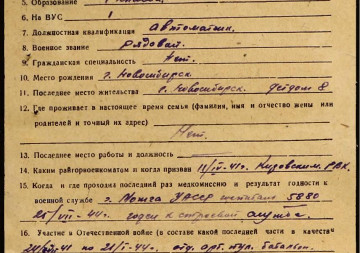 5. Образование
6. На ВУС 1
7. Должностная квалификация автоматчик.
8. Военное звание рядовой.
9. Гражданская специальность Нет.
10. Место рождения г. Новосибирск.
11. Последнее место жительства г. Новосибирск. Детдом 8
12. Где проживает в настоящее время семья (фамилия, имя и отчество жены или
родителей и точный их адрес)
Нет.
13. Последнее место работы и должность
14. Каким райгорвоенкоматом и когда призван РВК.
15. Когда и где проходил последний раз медкомиссию и результат годности к
военной службе г. Можга УАССР 5880
25/VII-44г. годен к строевой службе.
16. Участие в Отечественной войне (в составе какой последней части и в качестве
по отд. арт. пул. батальон